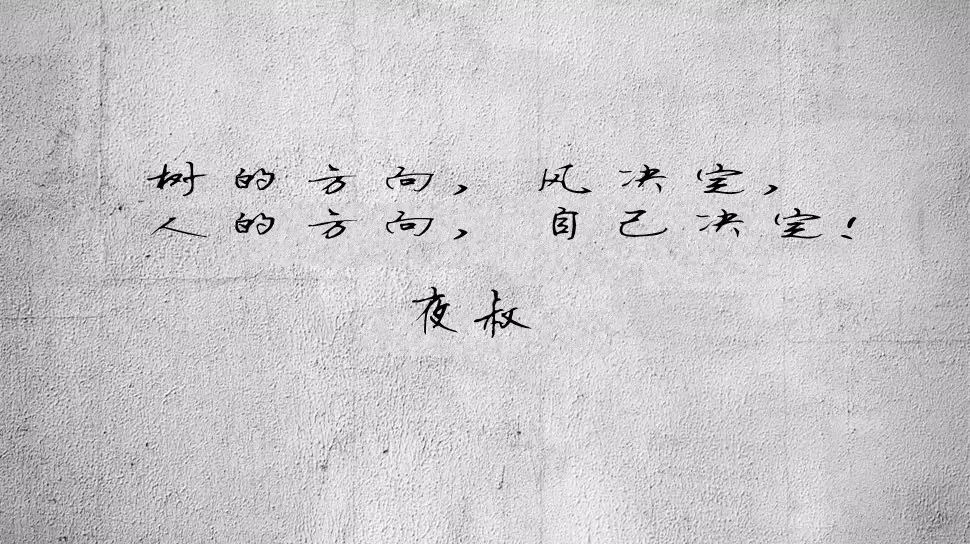 树的方向，风决定，
人的方向，自己决定！
夜叔